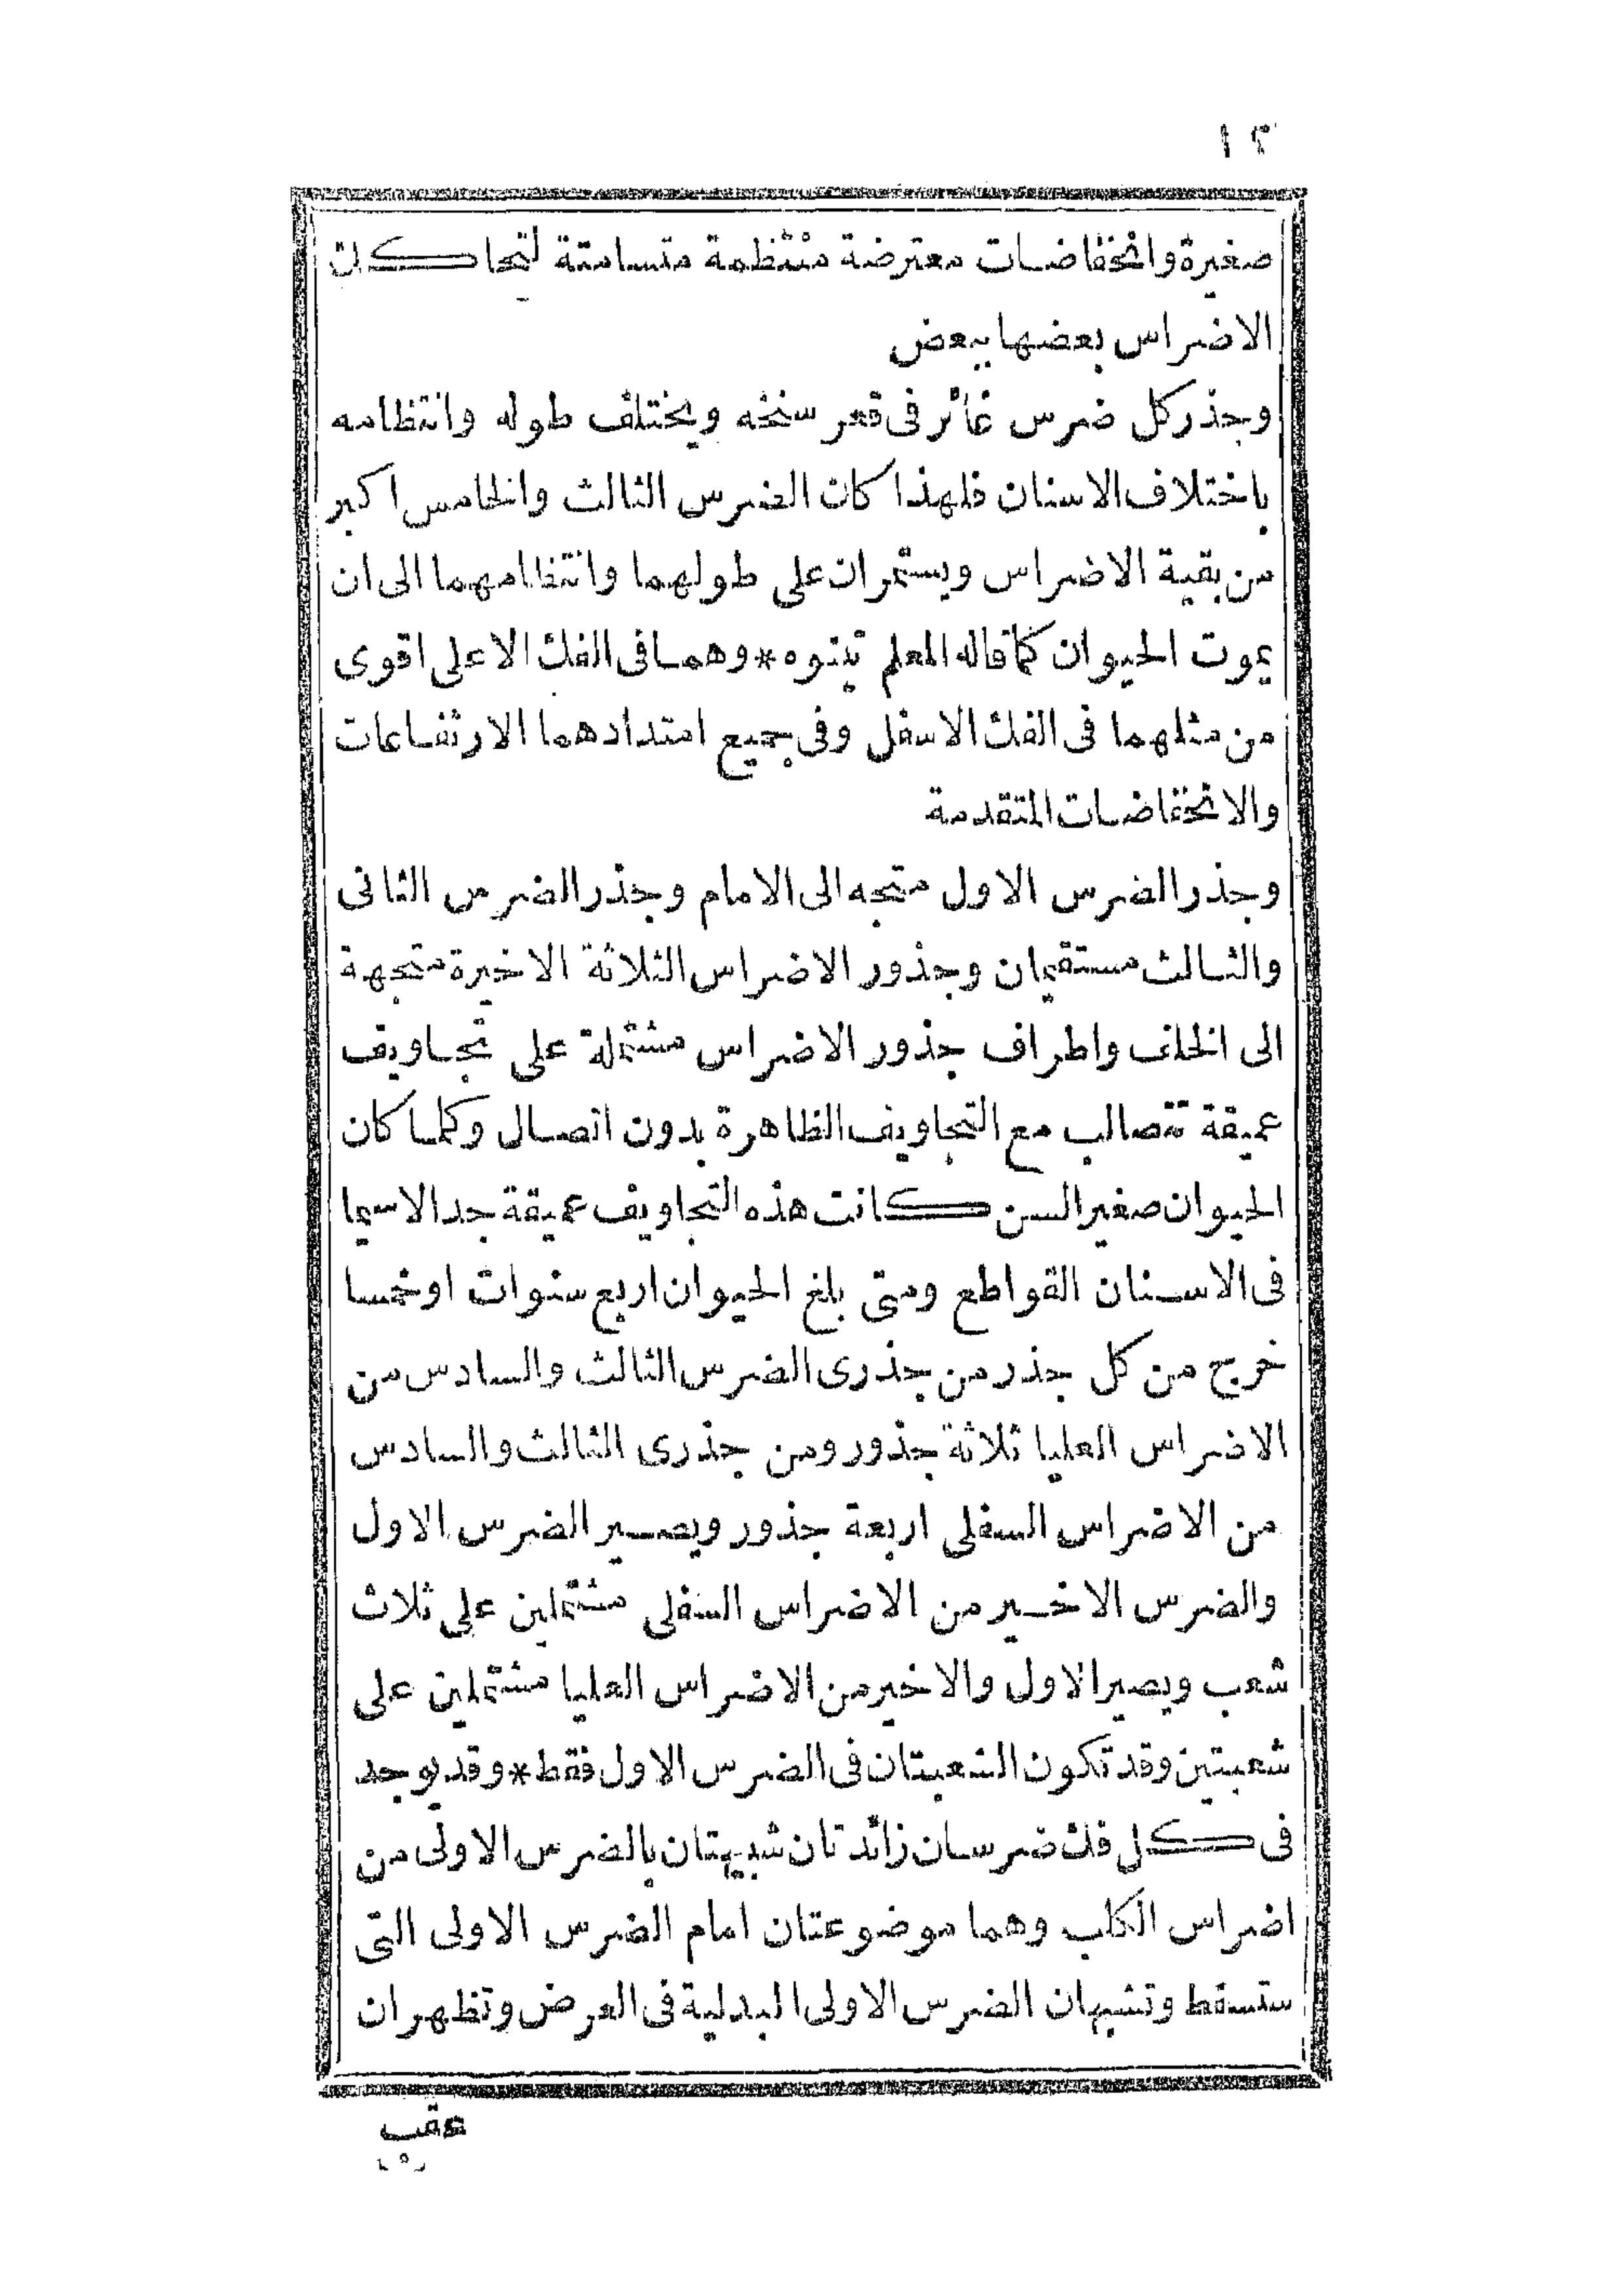 ١٢
صغيرة وانخفاضات معترضة منتظمة متسامتة لتحاكك
الاضراس بعضها ببعض
وجذر كل ضرس غائر فى قعر سنخه ويختلف طوله وانتظامه
باختلاف الاسنان فلهذا كان الضرس الثالث والخامس اكبر
من بقية الاضراس ويستمران على طولهما وانتظامهما الى ان
يموت الحيوان كما قاله المعلم تينوه * وهما فى الفك الاعلى اقوى
من مثلهما فى الفك الاسفل وفى جميع امتدادهما الارتفاعات
والانخفاضات المتقدمة
وجذر الضرس الاول متجه الى الامام وجذر الضرس الثانى
والثالث مستقيمان وجذور الاضراس الثلاثة الاخيرة متجهة
الى الخلف واطراف جذور الاضراس مشتملة على تجاويف
عميقة تتصالب مع التجاويف الظاهرة بدون اتصال وكلما كان
الحيوان صغير السن كانت هذه التجاويف عميقة جدا لاسيما
فى الاسنان القواطع ومتى بلغ الحيوان اربع سنوات او خمسا
خرج من كل جذر من جذرى الضرس الثالث والسادس من
الاضراس العليا ثلاثة جذور ومن جذرى الثالث والسادس
من الاضراس السفلى اربعة جذور ويصير الضرس الاول
والضرس الاخير من الاضراس السفلى مشتملين على ثلاث
شعب ويصير الاول والاخير من الاضراس العليا مشتملين على
شعبتين وقد تكون الشعبتان فى الضرس الاول فقط * وقد يوجد
فى كل فك ضرسان زائدتان شبيهتان بالضرس الاولى من
اضراس الكلب وهما موضوعتان امام الضرس الاولى التى
ستسقط وتشبهان الضرس الاولى البدلية فى العرض وتظهران
عقب